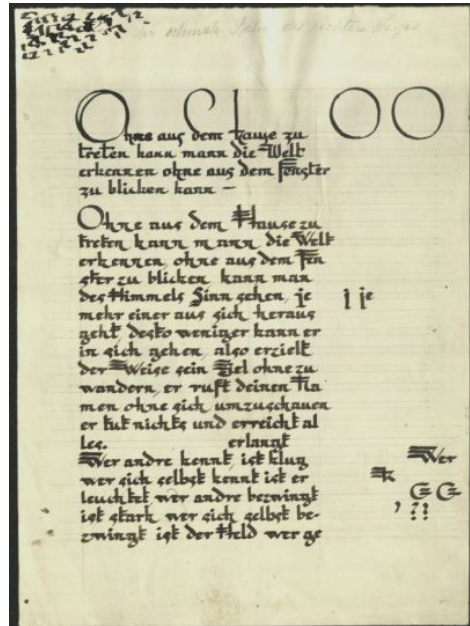 Der schmale Pfad des rechten Weges
O C O O
Ohne aus dem Hause zu
treten kann mann die Welt
erkennen ohne aus dem fenster
zu blicken kann —
Ohne aus dem Hause zu
treten kann mann die Welt
erkennen, ohne aus dem fen
ster zu blicken kann man
des Himmels Sinn sehen, je j je
mehr einer aus sich heraus
geht, desto weniger kann er
in sich gehen, also erzielt
der Weise sein Ziel ohne zu
wandern, er ruft deinen Na
men ohne sich umzuschauen
er tut nichts und erreicht al
les. erlangt
Wer andre kennt, ist klug Wer
wer sich selbst kennt ist er k
leuchtet wer andre bezwingt G G
ist stark wer sich selbst be- , ??
zwingt ist der Held wer ge